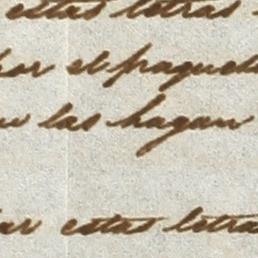 estas letras
por el paquete
las hagan
por estas letras